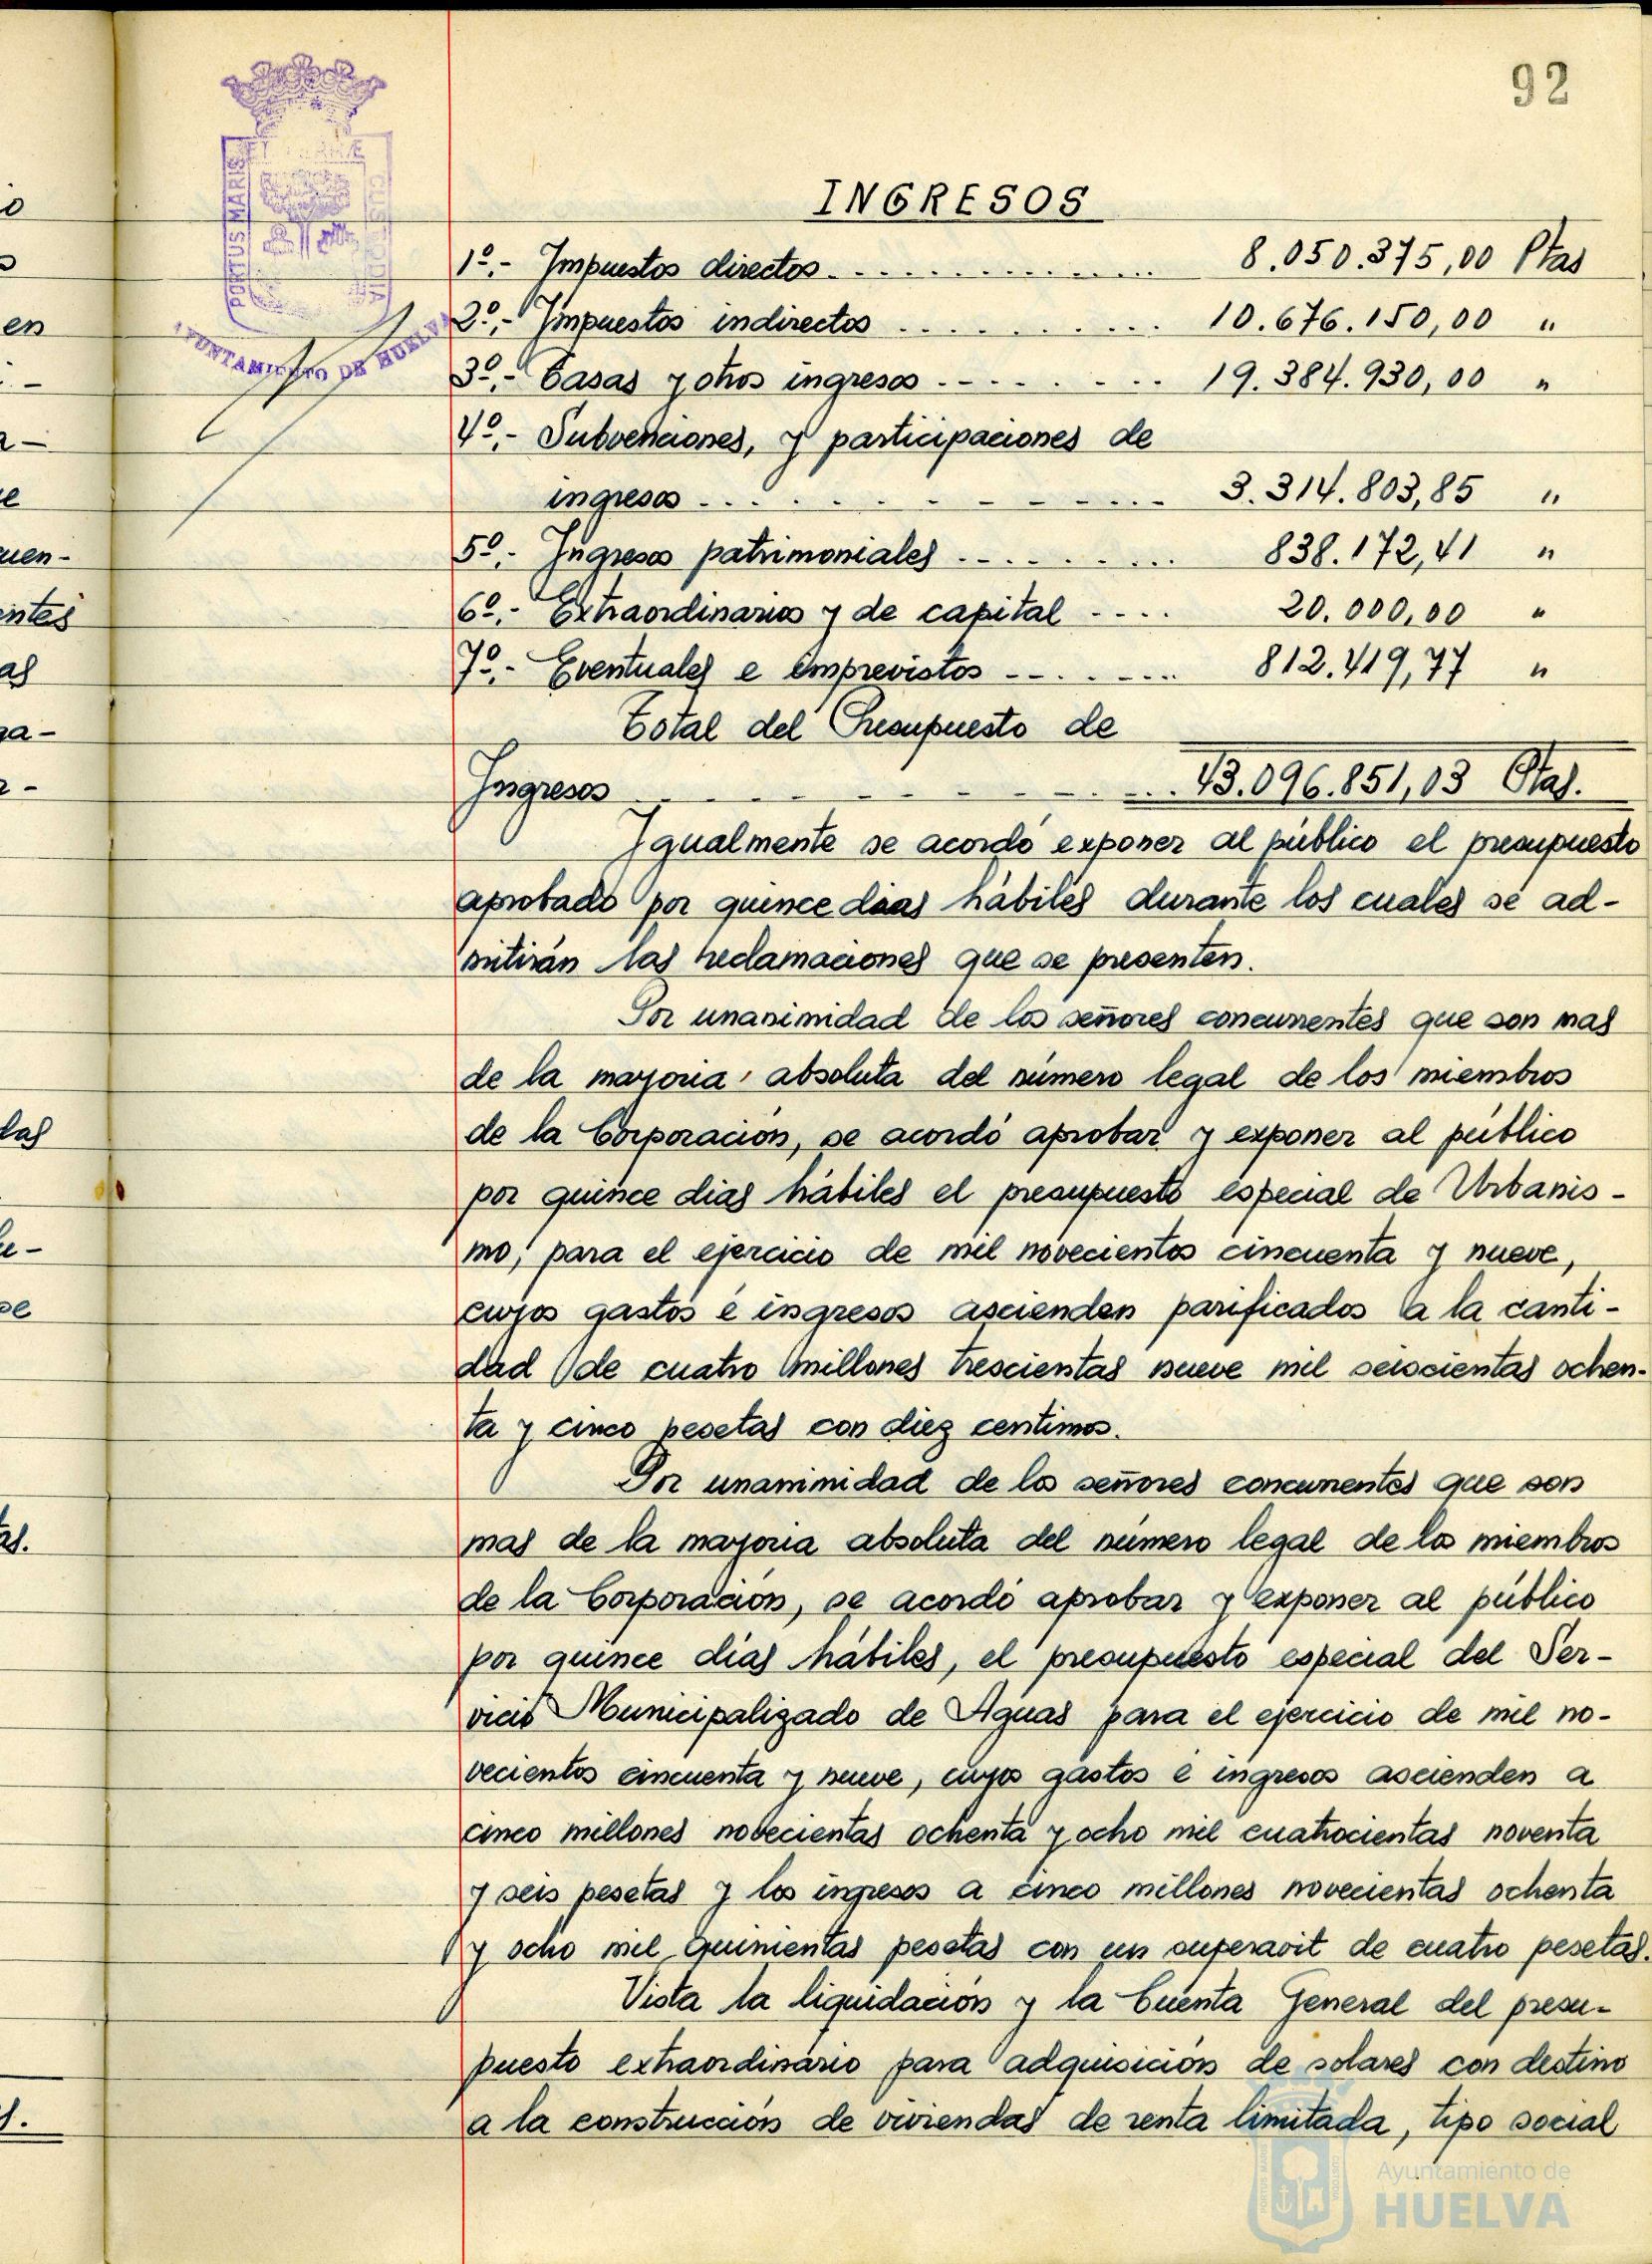 92
PORTUS MARIS ET TERRÆ CUSTODIA
AYUNTAMIENTO DE HUELVA
INGRESOS
1º.- Impuestos directos............... 8.050.375,00 Ptas
2º.- Impuestos indirectos ............ 10.676.150,00 "
3º.- Tasas y otros ingresos .......... 19.384.930,00 "
4º.- Subvenciones, y participaciones de
ingresos ............... 3.314.803,85 "
5º.- Ingresos patrimoniales .......... 838.172,41 "
6º.- Extraordinarios y de capital .... 20.000,00 "
7º.- Eventuales e imprevistos ........ 812.419,77 "
Total del Presupuesto de
Ingresos ............... 43.096.851,03 Ptas.
Igualmente se acordó exponer al público el presupuesto
aprobado por quince dias hábiles durante los cuales se ad-
mitirán las reclamaciones que se presenten.
Por unanimidad de los señores concurrentes que son mas
de la mayoria absoluta del número legal de los miembros
de la Corporación, se acordó aprobar y exponer al público
por quince dias hábiles el presupuesto especial de Urbanis-
mo, para el ejercicio de mil novecientos cincuenta y nueve,
cuyos gastos é ingresos ascienden parificados a la canti-
dad de cuatro millones trescientas nueve mil seiscientas ochen-
ta y cinco pesetas con diez centimos.
Por unanimidad de los señores concurrentes que son
mas de la mayoria absoluta del número legal de los miembros
de la Corporación, se acordó aprobar y exponer al público
por quince días hábiles, el presupuesto especial del Ser-
vicio Municipalizado de Aguas para el ejercicio de mil no-
vecientos cincuenta y nueve, cuyos gastos é ingresos ascienden a
cinco millones novecientas ochenta y ocho mil cuatrocientas noventa
y seis pesetas y los ingresos a cinco millones novecientas ochenta
y ocho mil quinientas pesetas con un superavit de cuatro pesetas.
Vista la liquidación y la Cuenta General del presu-
puesto extraordinario para adquisición de solares con destino
a la construcción de viviendas de renta limitada, tipo social
Ayuntamiento de
HUELVA